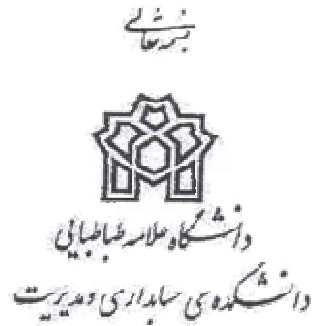 بسمه تعالی
دانشگاه علامه طباطبایی
دانشکده‌ی حسابداری و مدیریت